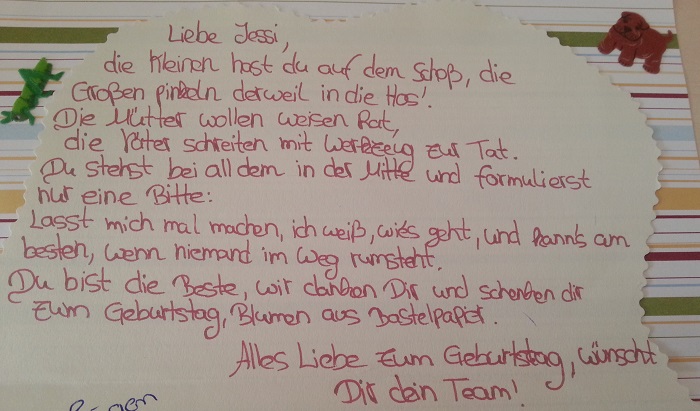 Liebe Jessi,
die Kleinen hast du auf dem Schoß, die
Großen pinkeln derweil in die Hos'.
Die Mütter wollen weisen Rat,
die Väter schreiten mit Werkzeug zur Tat.
Du stehst bei all dem in der Mitte und formulierst
nur eine Bitte:
Lasst mich mal machen, ich weiß, wie's geht, und kann's am
besten, wenn niemand im Weg rumsteht.
Du bist die Beste, wir danken Dir und schenken dir
zum Geburtstag, Blumen aus Bastelpapier.
Alles Liebe zum Geburtstag, wünscht
Dir dein Team!